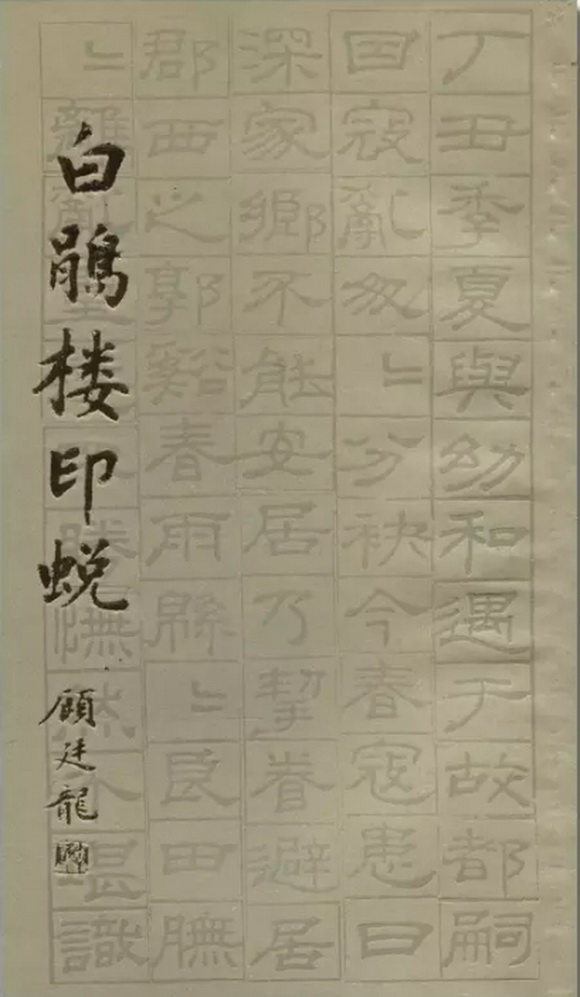 丁丑季夏與幼和遇于故都嗣
囙寇亂匆〻分袂今春寇患日
深家鄉不能安居乃挈眷避居
郡西之郭谿春雨緜〻良田膴
〻離亂憮然堪識
白鹃楼印蜕
顾廷龍